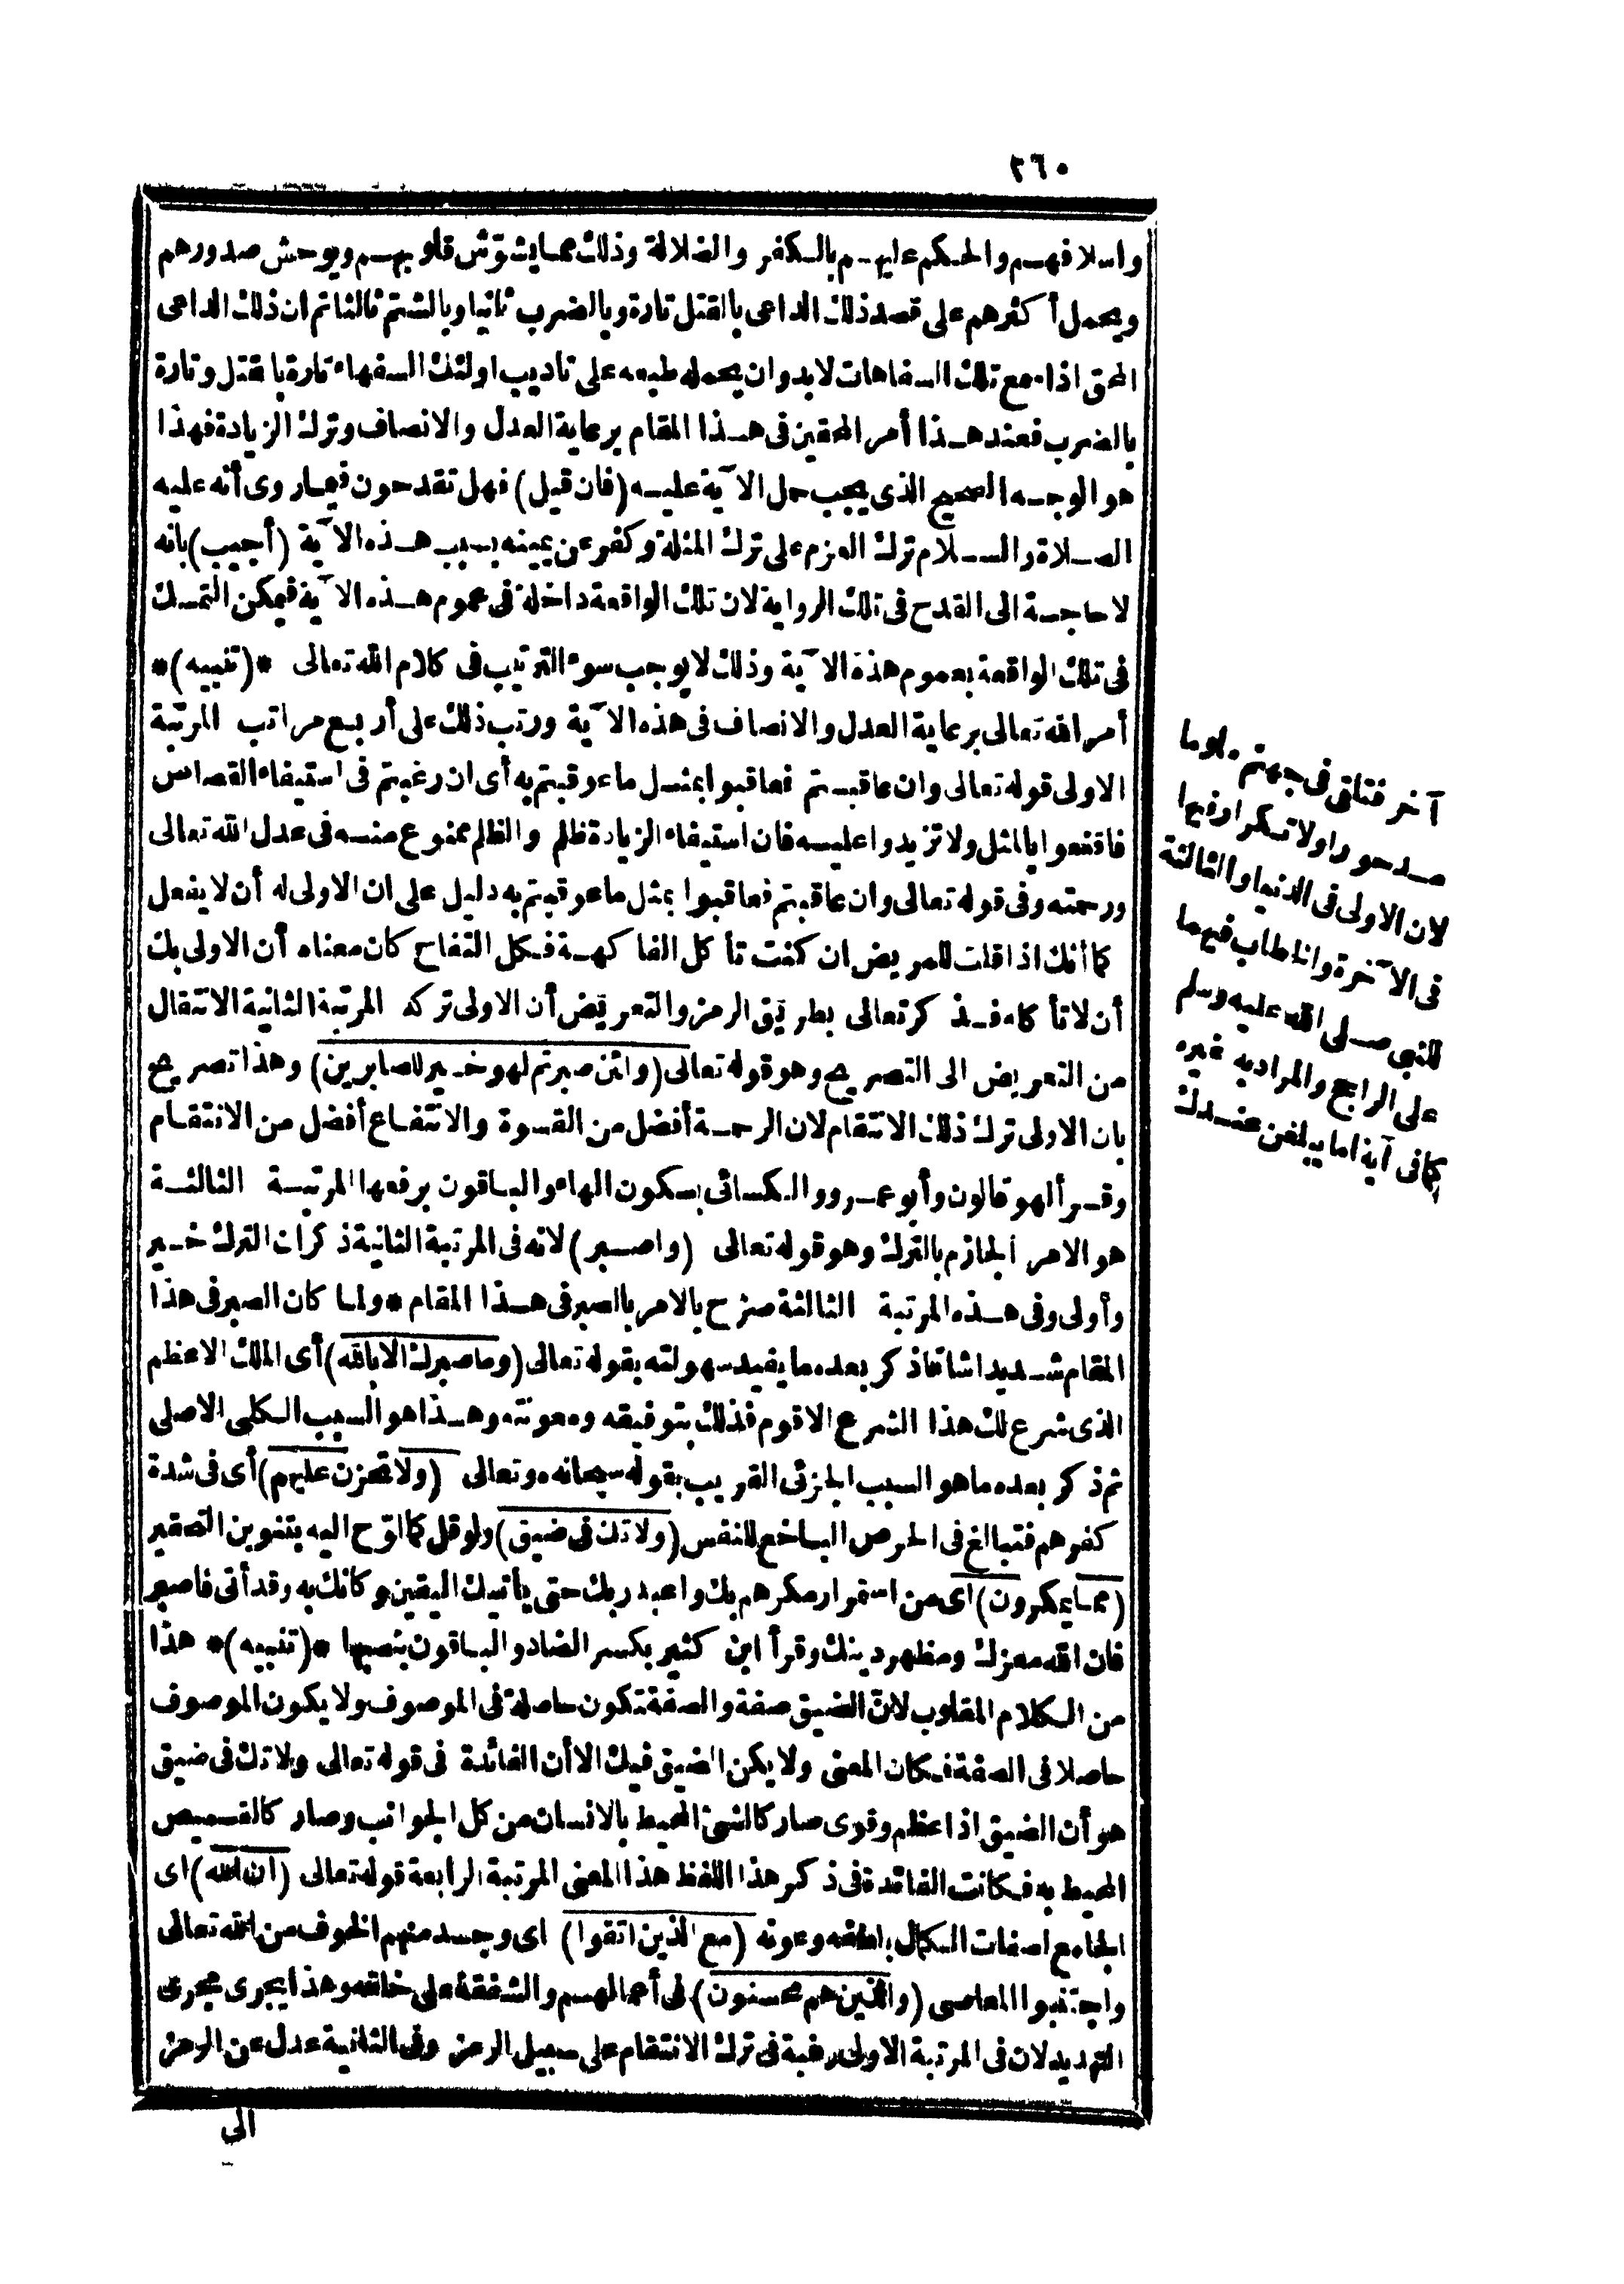 ٢٦٠
واسلافهم والحكم عليهم بالكفر والضلالة وذلك مما يشوّش قلوبهم ويوحش صدورهم
ويحمل أكثرهم على قصد ذلك الداعى بالقتل تارة وبالضرب ثانيا وبالشتم ثالثا ثم ان ذلك الداعى
المحق اذا سمع تلك السفاهات لابد وان يحمله طبعه على تاديب اولئك السفهاء تارة بالقتل وتارة
بالضرب فعند هذا أمر المحقين فى هذا المقام برعاية العدل والانصاف وترك الزيادة فهذا
هو الوجه الصحيح الذى يجب حمل الآية عليه (فان قيل) فهل تقدحون فيما روى أنه عليه
الصلاة والسلام ترك العزم على ترك المثلة وكفر عن يمينه بسبب هذه الآية (أجيب) بانه
لا حاجة الى القدح فى تلك الرواية لان تلك الواقعة داخلة فى عموم هذه الآية فيمكن التمسك
فى تلك الواقعة بعموم هذه الآية وذلك لا يوجب سوء الترتيب فى كلام الله تعالى *(تنبيه)*
أمر الله تعالى برعاية العدل والانصاف فى هذه الآية ورتب ذلك على أربع مراتب المرتبة
الاولى قوله تعالى وان عاقبتم فعاقبوا بمثل ما عوقبتم به أى ان رغبتم فى استيفاء القصاص
فاقنعوا بالمثل ولا تزيدوا عليه فان استيفاء الزيادة ظلم والظلم ممنوع منه فى عدل الله تعالى
ورحمته وفى قوله تعالى وان عاقبتم فعاقبوا بمثل ما عوقبتم به دليل على ان الاولى له أن لا يفعل
كما أنك اذا قلت للمريض ان كنت تأكل الفاكهة فكل التفاح كان معناه أن الاولى بك
أن لا تأكله فذكر تعالى بطريق الرمز والتعريض أن الاولى تركه المرتبة الثانية الانتقال
من التعريض الى التصريح وهو قوله تعالى (ولئن صبرتم لهو خير للصابرين) وهذا تصريح
بان الاولى ترك ذلك الانتقام لان الرحمة أفضل من القسوة والانتفاع أفضل من الانتقام
وقرأ لهو قالون وأبو عمرو والكسائى بسكون الهاء والباقون برفعها المرتبة الثالثة
هو الامر الجازم بالترك وهو قوله تعالى (واصبر) لانه فى المرتبة الثانية ذكر ان الترك خير
وأولى وفى هذه المرتبة الثالثة صرّح بالامر بالصبر فى هذا المقام * ولما كان الصبر فى هذا
المقام شديدا شاقا ذكر بعده ما يفيد سهولته بقوله تعالى (وما صبرك الا بالله) أى الملك الاعظم
الذى شرع لك هذا الشرع الاقوم فذلك بتوفيقه ومعونته وهذا هو السبب الكلى الاصلى
ثم ذكر بعده ما هو السبب الجزئى القريب بقوله سبحانه وتعالى (ولا تحزن عليهم) أى فى شدة
كفرهم فتبالغ فى الحرص الباخع للنفس (ولا تك فى ضيق) ولو قل كما لوّح اليه بتنوين التحقير
(مما يمكرون) اى من استمرار مكرهم بك واعبد ربك حتى يأتيك اليقين وكانك به وقد أتى فاصبر
فان الله معزك ومظهر دينك وقرأ ابن كثير بكسر الضاد والباقون بنصبها *(تنبيه)* هذا
من الكلام المقلوب لانّ الضيق صفة والصفة تكون حاصلة فى الموصوف ولا يكون الموصوف
حاصلا فى الصفة فكان المعنى ولا يكن الضيق فيك الا أن الفائدة فى قوله تعالى ولا تك فى ضيق
هو أن الضيق اذا عظم وقوى صار كالشئ المحيط بالانسان من كل الجوانب وصار كالقميص
المحيط به فكانت الفائدة فى ذكر هذا اللفظ هذا المعنى المرتبة الرابعة قوله تعالى (ان الله) اى
الجامع لصفات الكمال بلطفه وعونه (مع الذين اتقوا) اى وجد منهم الخوف من الله تعالى
واجتنبوا المعاصى (والذين هم محسنون) فى أعمالهم والشفقة على خلقه وهذا يجرى مجرى
التهديد لان فى المرتبة الاولى رغبة فى ترك الانتقام على سبيل الرمز وفى الثانية عدل عن الرمز
الى
آخر فتلقى فى جهنم ملوما
مدحورا ولا تكرار فيها
لان الاولى فى الدنيا والثالثة
فى الآخرة والخطاب فيهما
للنبى صلى الله عليه وسلم
على الراجح والمراد به غيره
كما فى آية اما يبلغن عندك